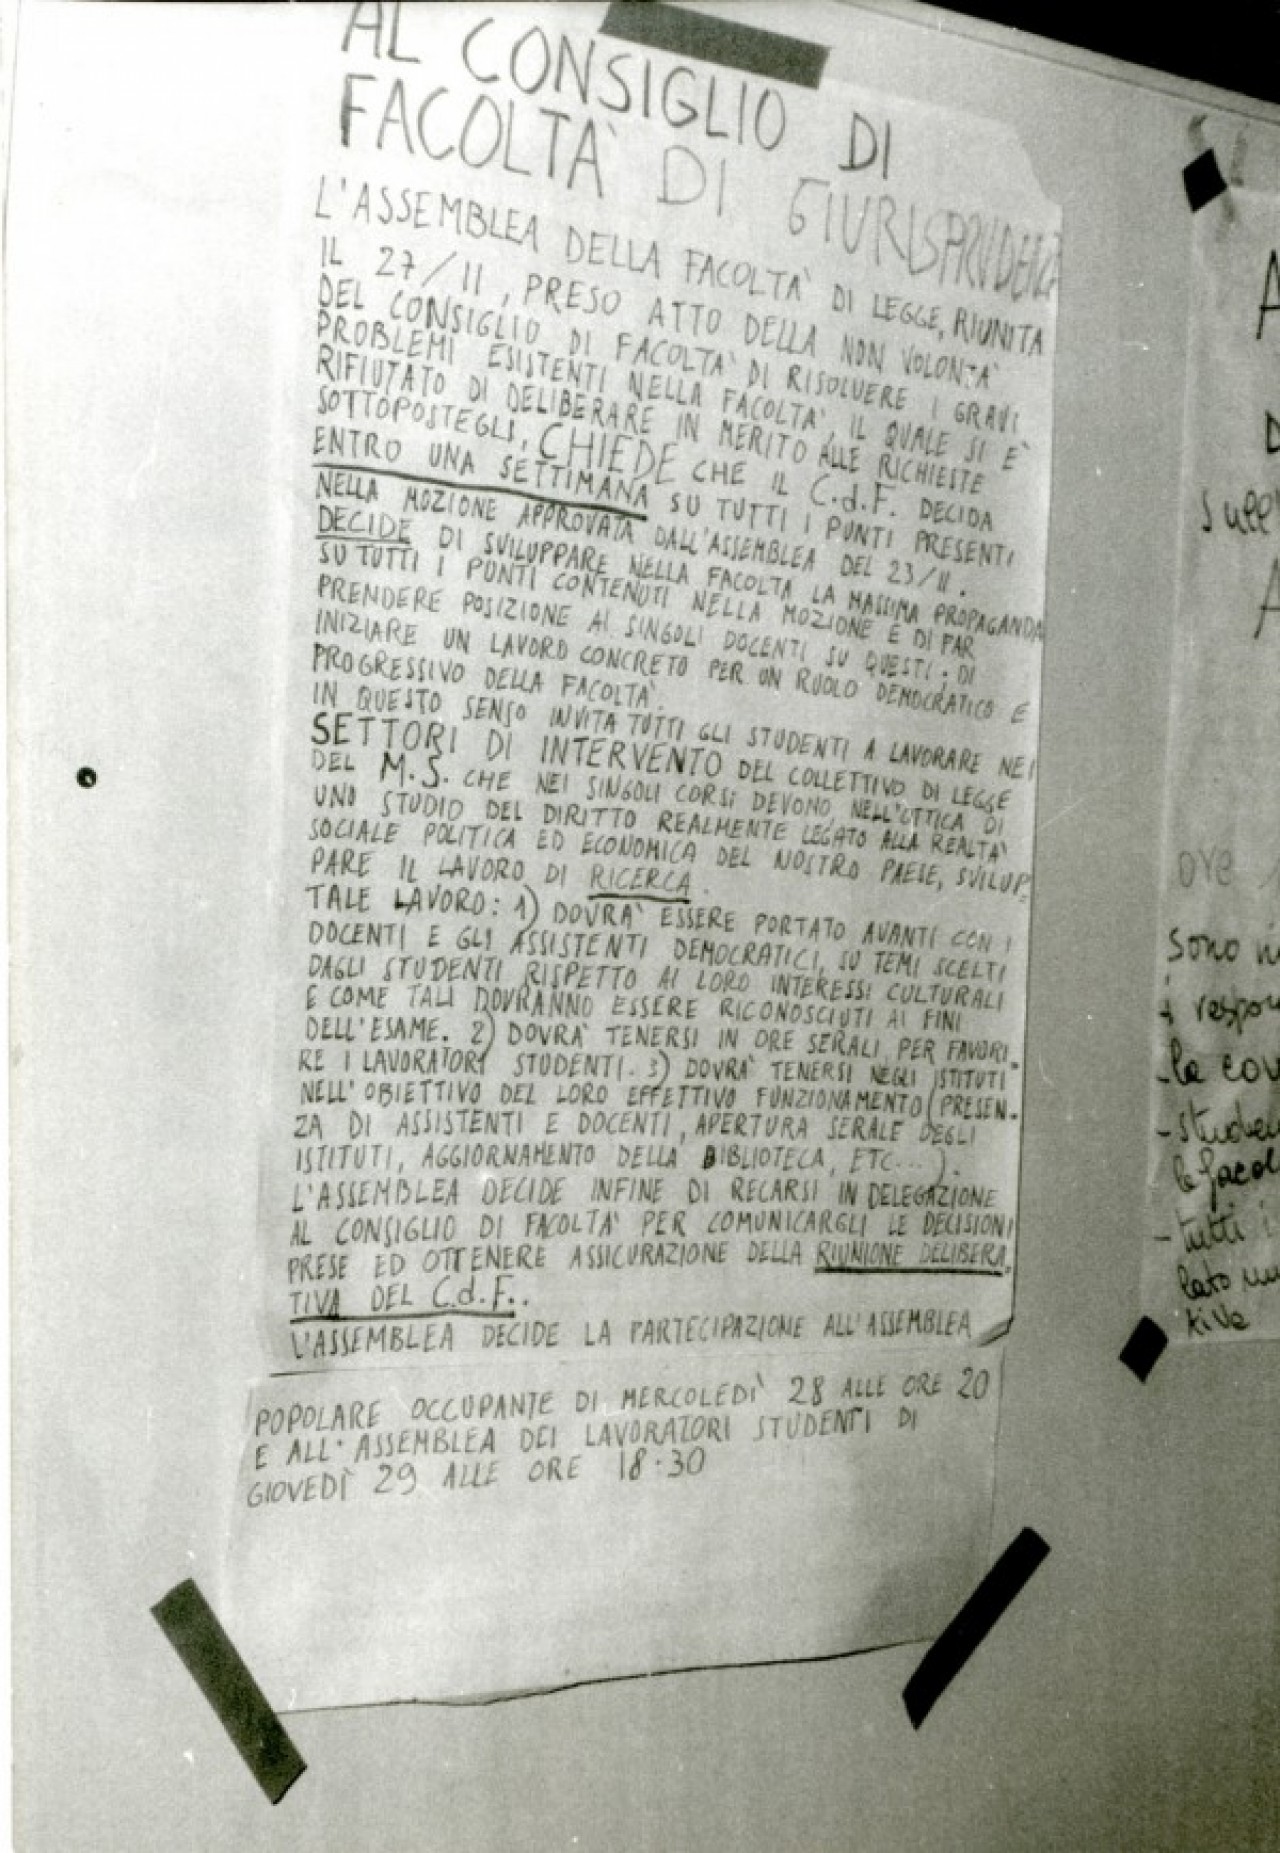 AL CONSIGLIO DI
FACOLTA' DI GIURISPRUDENZA
L'ASSEMBLEA DELLA FACOLTA' DI LEGGE, RIUNITA
IL 27/11, PRESO ATTO DELLA NON VOLONTA'
DEL CONSIGLIO DI FACOLTA' DI RISOLVERE I GRAVI
PROBLEMI ESISTENTI NELLA FACOLTA', IL QUALE SI E'
RIFIUTATO DI DELIBERARE IN MERITO ALLE RICHIESTE
SOTTOPOSTEGLI, CHIEDE CHE IL C.d.F. DECIDA
ENTRO UNA SETTIMANA SU TUTTI I PUNTI PRESENTI
NELLA MOZIONE APPROVATA DALL'ASSEMBLEA DEL 23/11.
DECIDE DI SVILUPPARE NELLA FACOLTA LA MASSIMA PROPAGANDA
SU TUTTI I PUNTI CONTENUTI NELLA MOZIONE E DI FAR
PRENDERE POSIZIONE AI SINGOLI DOCENTI SU QUESTI; DI
INIZIARE UN LAVORO CONCRETO PER UN RUOLO DEMOCRATICO E
PROGRESSIVO DELLA FACOLTA'.
IN QUESTO SENSO INVITA TUTTI GLI STUDENTI A LAVORARE NEI
SETTORI DI INTERVENTO DEL COLLETTIVO DI LEGGE
DEL M.S. CHE NEI SINGOLI CORSI DEVONO, NELL'OTTICA DI
UNO STUDIO DEL DIRITTO REALMENTE LEGATO ALLA REALTA'
SOCIALE POLITICA ED ECONOMICA DEL NOSTRO PAESE, SVILUP-
PARE IL LAVORO DI RICERCA.
TALE LAVORO: 1) DOVRA' ESSERE PORTATO AVANTI CON I
DOCENTI E GLI ASSISTENTI DEMOCRATICI, SU TEMI SCELTI
DAGLI STUDENTI RISPETTO AI LORO INTERESSI CULTURALI
E COME TALI DOVRANNO ESSERE RICONOSCIUTI AI FINI
DELL'ESAME. 2) DOVRA' TENERSI IN ORE SERALI PER FAVORI-
RE I LAVORATORI STUDENTI. 3) DOVRA' TENERSI NEGLI ISTITUTI
NELL'OBIETTIVO DEL LORO EFFETTIVO FUNZIONAMENTO (PRESEN-
ZA DI ASSISTENTI E DOCENTI, APERTURA SERALE DEGLI
ISTITUTI, AGGIORNAMENTO DELLA BIBLIOTECA, ETC...).
L'ASSEMBLEA DECIDE INFINE DI RECARSI IN DELEGAZIONE
AL CONSIGLIO DI FACOLTA' PER COMUNICARGLI LE DECISIONI
PRESE ED OTTENERE ASSICURAZIONE DELLA RIUNIONE DELIBERA-
TIVA DEL C.d.F..
L'ASSEMBLEA DECIDE LA PARTECIPAZIONE ALL'ASSEMBLEA
POPOLARE OCCUPANTE DI MERCOLEDI' 28 ALLE ORE 20
E ALL'ASSEMBLEA DEI LAVORATORI STUDENTI DI
GIOVEDI' 29 ALLE ORE 18:30
A
D
sull
A
ore
sono
- la
- tutti i